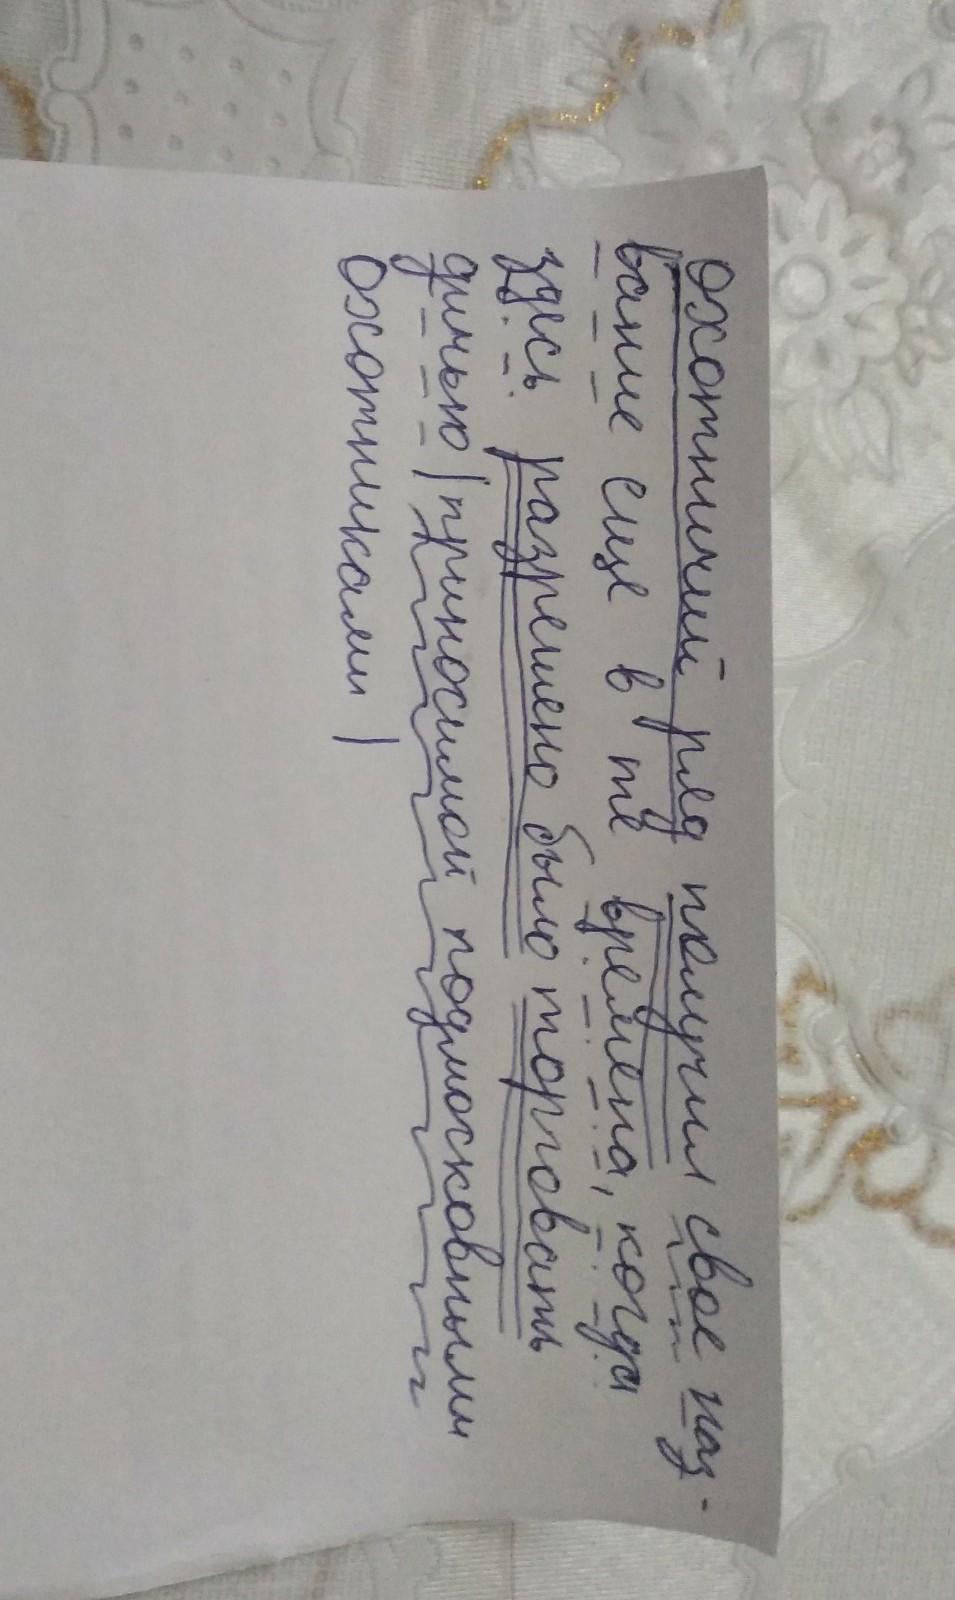 Охотничий ряд получил свое наз-
вание еще в те времена, когда
здесь разрешено было торговать
дичью |приносимой подмосковными
охотниками|